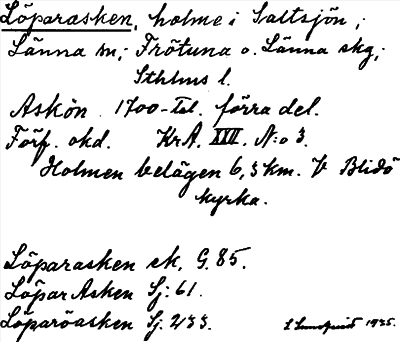 Löparasken, holme i Saltsjön;
Länna sn; Frötuna o. Länna skg;
Sthlms l.
Askön 1700-tal. förra del.
Förf. okd. KrA. XVII. N:o 3.
Holmen belägen 6,3 km. V Blidö
kyrka.
Löparasken ek. G. 85.
Löpar Asken Sj: 61.
Löparöasken Sj. 233.
1935.